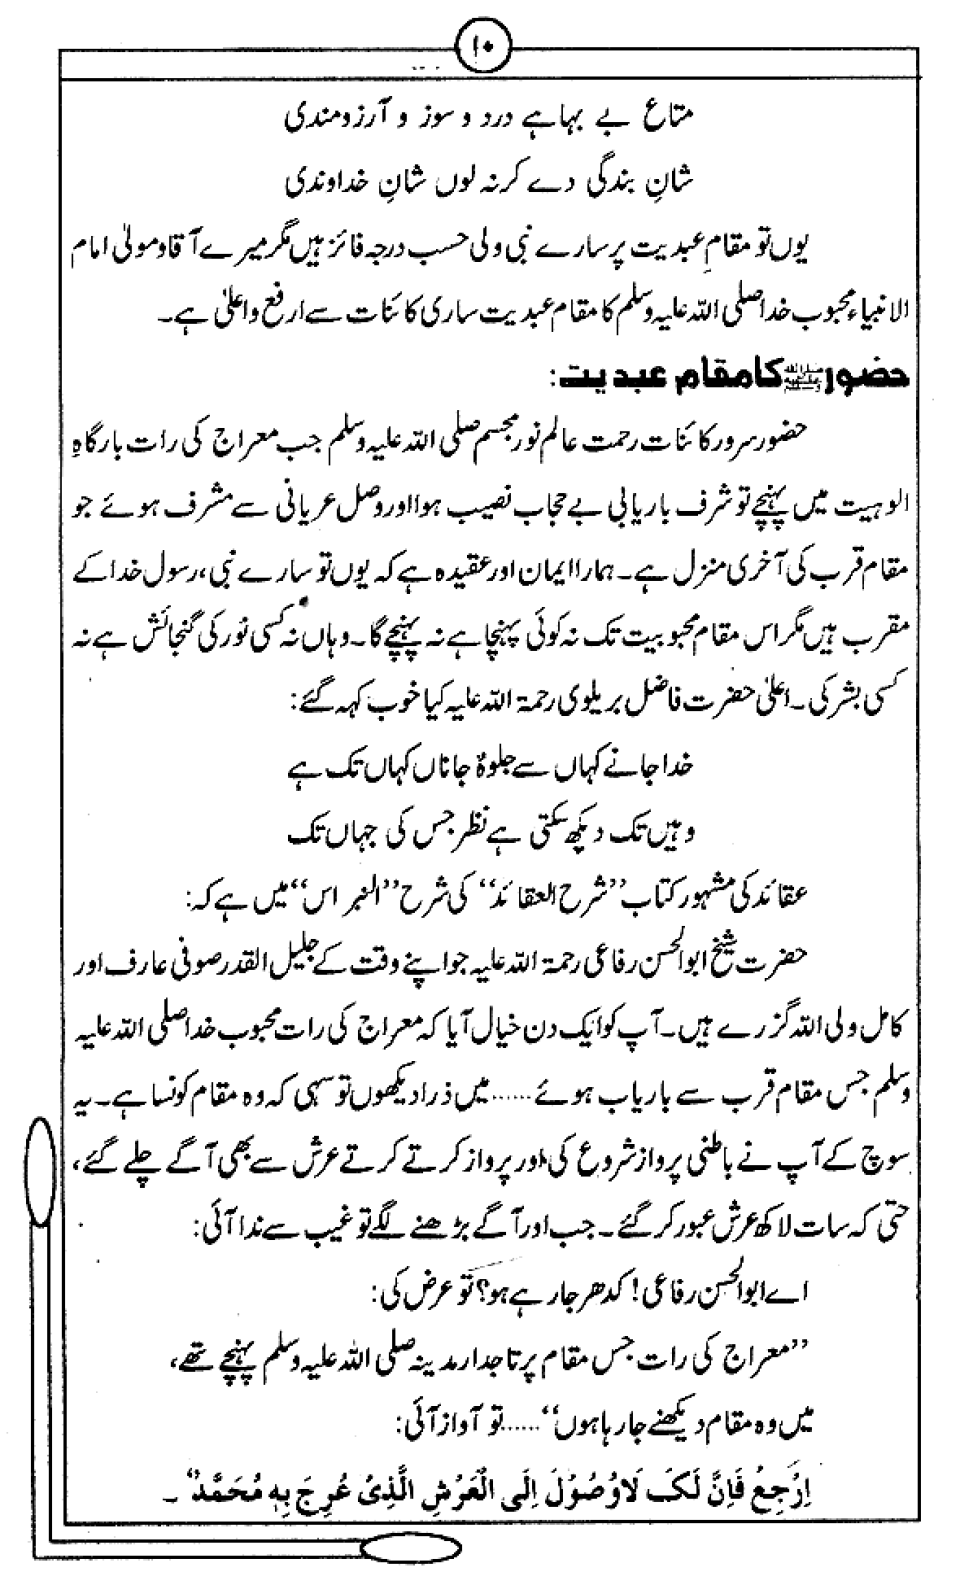 ۱۰
متاع بے بہا ہے درد و سوز و آرزومندی
شانِ بندگی دے کر نہ لوں شانِ خداوندی
یوں تو مقامِ عبدیت پر سارے نبی ولی حسب درجہ فائز ہیں مگر میرے آقا و مولیٰ امام
الانبیاء محبوب خدا صلی اللہ علیہ وسلم کا مقام عبدیت ساری کائنات سے ارفع و اعلیٰ ہے۔
حضور ﷺ کا مقام عبدیت:
حضور سرور کائنات رحمت عالم نور مجسم صلی اللہ علیہ وسلم جب معراج کی رات بارگاہِ
الوہیت میں پہنچے تو شرف باریابی بے حجاب نصیب ہوا اور وصل عریانی سے مشرف ہوئے جو
مقام قرب کی آخری منزل ہے۔ ہمارا ایمان اور عقیدہ ہے کہ یوں تو سارے نبی، رسول خدا کے
مقرب ہیں مگر اس مقام محبوبیت تک نہ کوئی پہنچا ہے نہ پہنچے گا۔ وہاں نہ کسی نور کی گنجائش ہے نہ
کسی بشر کی۔ اعلیٰ حضرت فاضل بریلوی رحمۃ اللہ علیہ کیا خوب کہہ گئے:
خدا جانے کہاں سے جلوۂ جاناں کہاں تک ہے
وہیں تک دیکھ سکتی ہے نظر جس کی جہاں تک
عقائد کی مشہور کتاب ”شرح العقائد“ کی شرح ”النبر اس“ میں ہے کہ:
حضرت شیخ ابوالحسن رفاعی رحمۃ اللہ علیہ جو اپنے وقت کے جلیل القدر صوفی عارف اور
کامل ولی اللہ گزرے ہیں۔ آپ کو ایک دن خیال آیا کہ معراج کی رات محبوب خدا صلی اللہ علیہ
وسلم جس مقام قرب سے باریاب ہوئے ...... میں ذرا دیکھوں تو سہی کہ وہ مقام کونسا ہے۔ یہ
سوچ کے آپ نے باطنی پرواز شروع کی اور پرواز کرتے کرتے عرش سے بھی آگے چلے گئے،
حتیٰ کہ سات لاکھ عرش عبور کر گئے۔ جب اور آگے بڑھنے لگے تو غیب سے ندا آئی:
اے ابوالحسن رفاعی! کدھر جا رہے ہو؟ تو عرض کی:
”معراج کی رات جس مقام پر تاجدار مدینہ صلی اللہ علیہ وسلم پہنچے تھے،
میں وہ مقام دیکھنے جا رہا ہوں“ ...... تو آواز آئی:
اِرْجِعْ فَاِنَّ لَکَ لَاوُصُوْلَ اِلَی الْعَرْشِ الَّذِیْ عُرِجَ بِهٖ مُحَمَّدٌ“۔